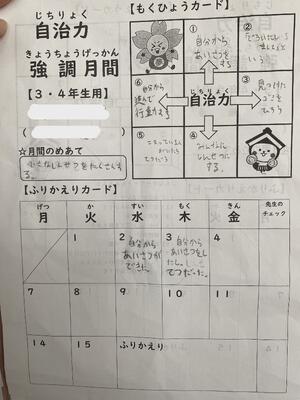 じちりょく
自治力
きょうちょうげっかん
強調月間
【3・4年生用】
☆月間のめあて
小さなしんせつをたくさんする。
【もくひょうカード】
①
自分から
あいさつを
する
②
③
見つけた
④
みんなに
しんせつに
する
⑤
こまっている人
がいたら
てつだう
⑥
自分から
進んで
行動する
じちりょく
自治力
【ふりかえりカード】
げつ
月
か
火
すい
水
もく
木
きん
金
先生の
チェック
1
2
自分から
あいさつが
できた。
3
自分から
あいさつをし
たし。
てつだった。
4
7
8
9
10
11
14
15
ふりかえり